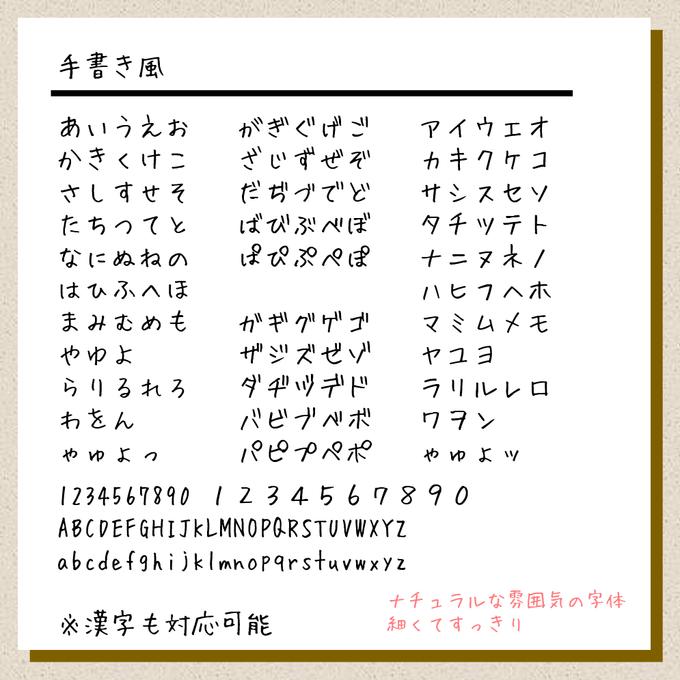 手書き風
あいうえお がぎぐげご アイウエオ
かきくけこ ざじずぜぞ カキクケコ
さしすせそ だぢづでど サシスセソ
たちつてと ばびぶべぼ タチツテト
なにぬねの ぱぴぷぺぽ ナニヌネノ
はひふへほ ハヒフヘホ
まみむめも ガギグゲゴ マミムメモ
やゆよ ザジズゼゾ ヤユヨ
らりるれろ ダヂヅデド ラリルレロ
わをん バビブベボ ワヲン
ゃゅょっ パピプペポ ゃゅょッ
1234567890 1234567890
ABCDEFGHIJKLMNOPQRSTUVWXYZ
abcdefghijklmnopqrstuvwxyz
ナチュラルな雰囲気の字体
細くてすっきり
※漢字も対応可能